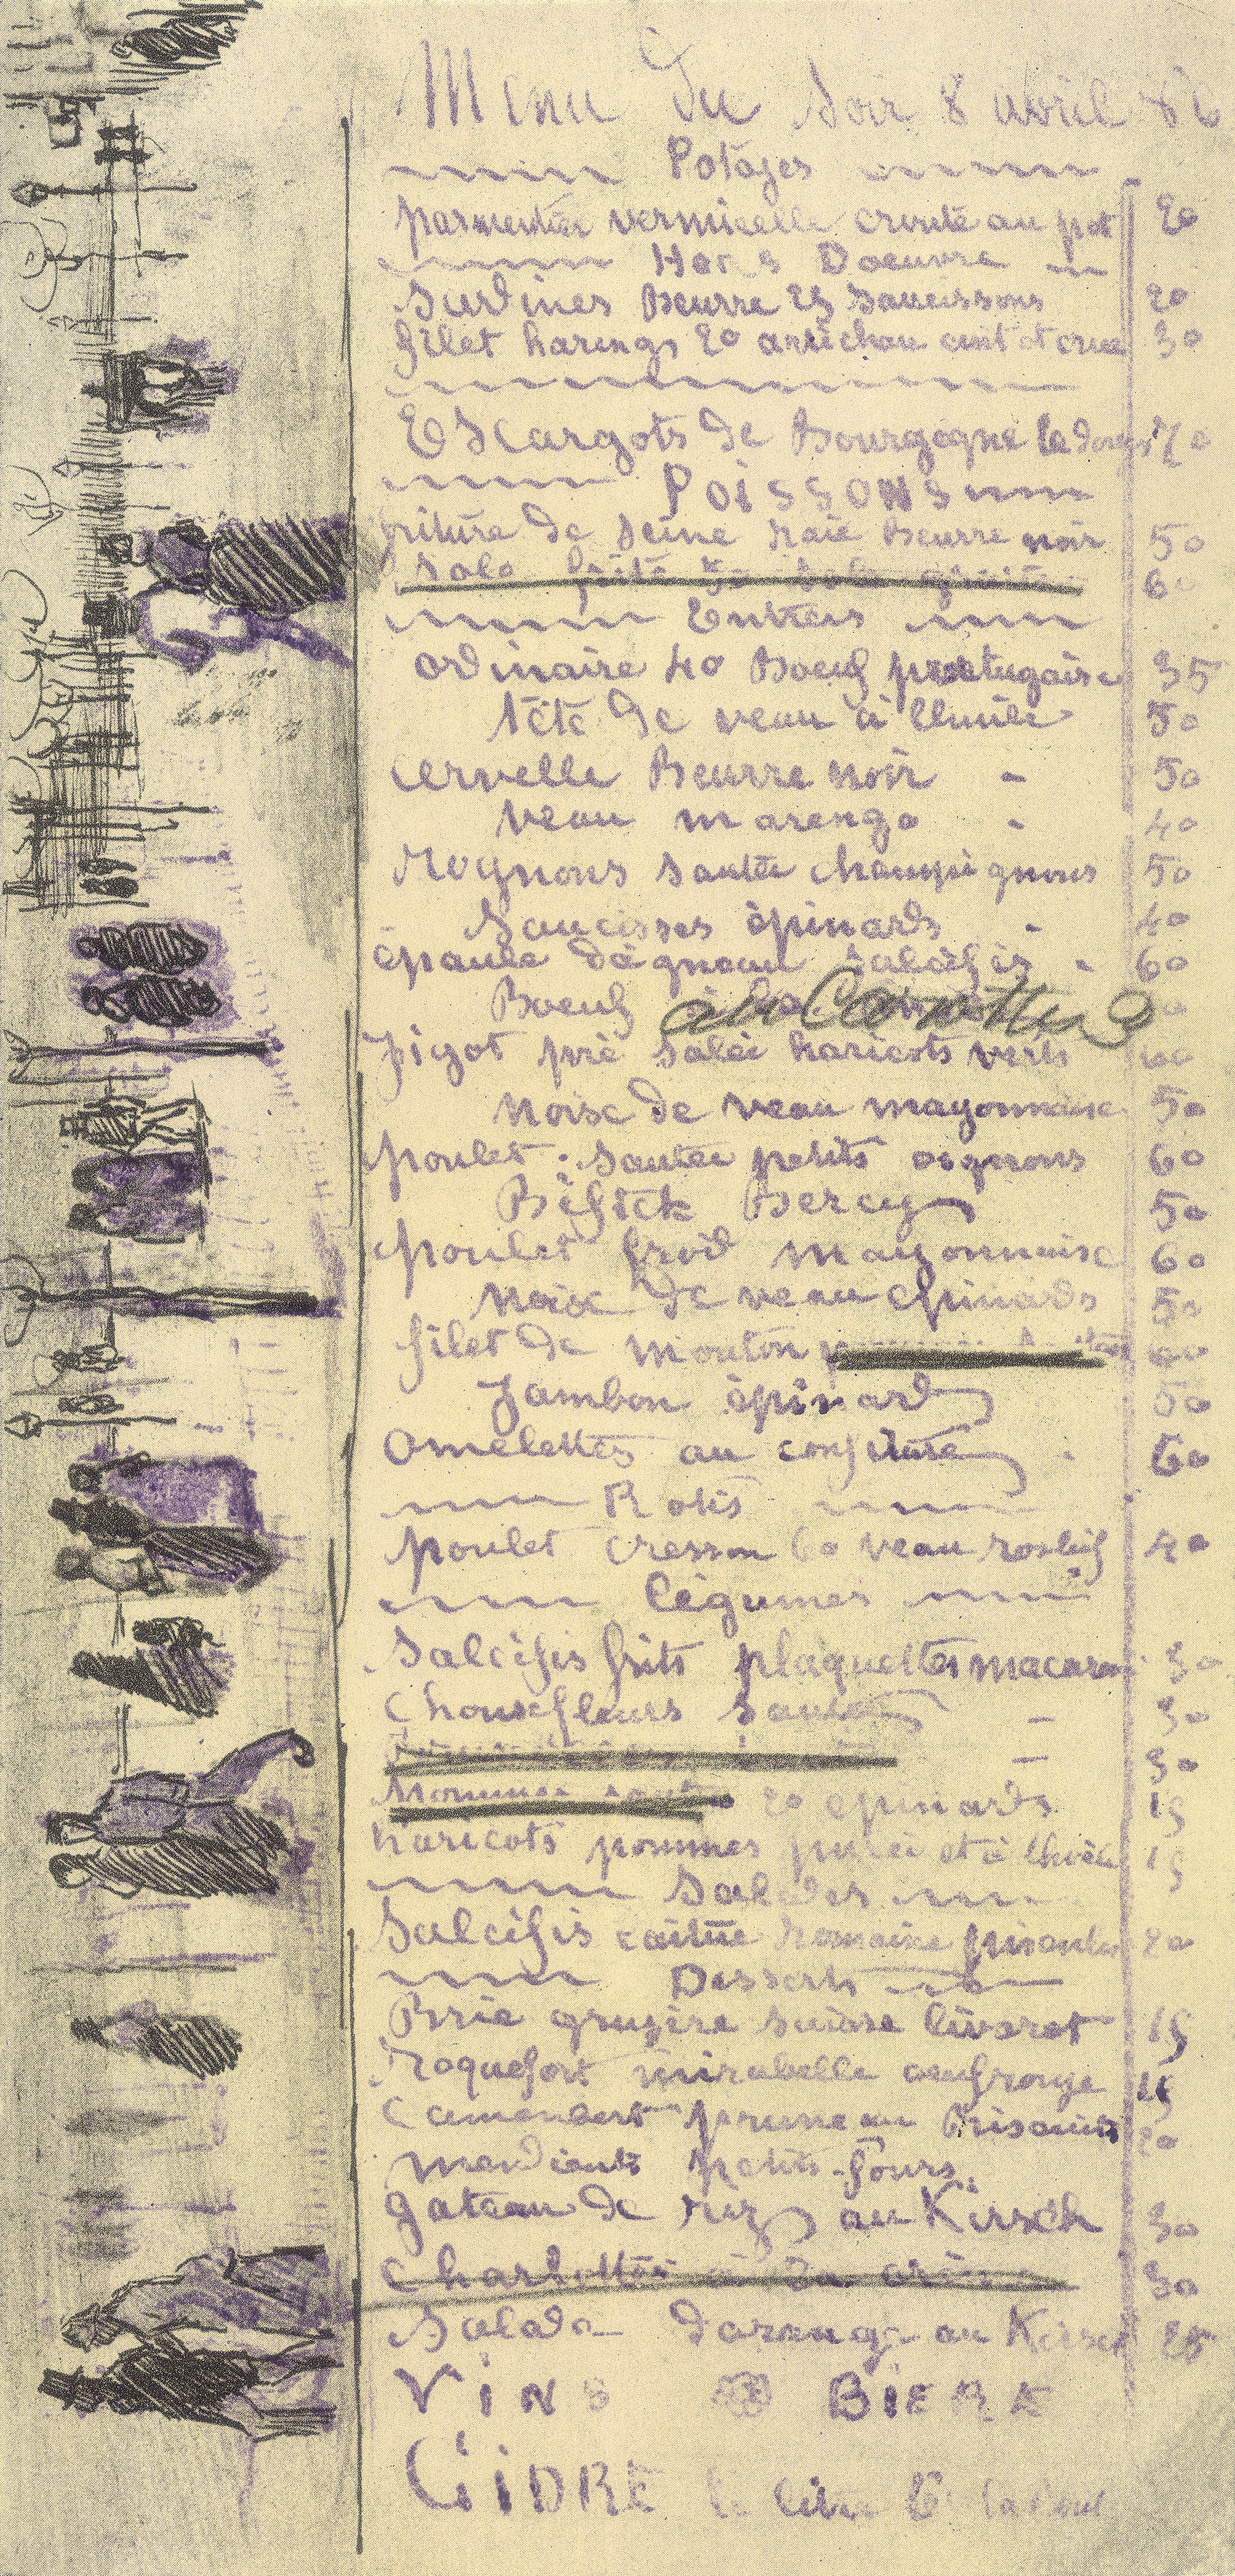 Menu Du Soir 8 avril 86
Potages
parmentier vermicelle croute au pot 20
Hors Doeuvre
Sardines Beurre 25 saucissons 20
filet harengs 20 artichau cuit et crue 30
EScargots de Bourgogne la douz 70
POISSONS
friture de Seine raie Beurre noir 50
Sole frite 60
Entrées
ordinaire 40 Boeuf portugaise 35
tête de veau à lhuile 50
cervelle Beurre noir - 50
veau marengo - 40
Rognons sautée champignons 50
Saucisses épinards - 40
épaule dágneau salsifis - 60
Boeuf au Carottes
Jigot pré salée haricots verts 60
noise de veau mayonnaise 50
poulet sautée petits oignons 60
Biftek Bercy 50
poulet froid mayonnaise 60
noix de veau épinards 50
filet de mouton 60
Jambon épinard 50
Omelettes au confiture 60
Rotis
poulet cresson 60 veau rosbif 40
légumes
Salcifis frits plaquettes macaroni 30
Chouxfleurs sautés - 30
- 30
Pommes sautée 20 epinards 15
haricots pommes purée et à lhuile 15
Salades
Salcifis laitue Romaine pisenlis 20
Desserts
Brie gruyère suisse livarot 15
Roquefort mirabelle oeuf rouge 15
Camembert pruneau Biscuits 20
mendiants petits-fours
gateau de riz au Kirsch 30
Charlottes à la crème 30
Salade dorange au Kirsch 25
VINS BIERE
CIDRE le litre